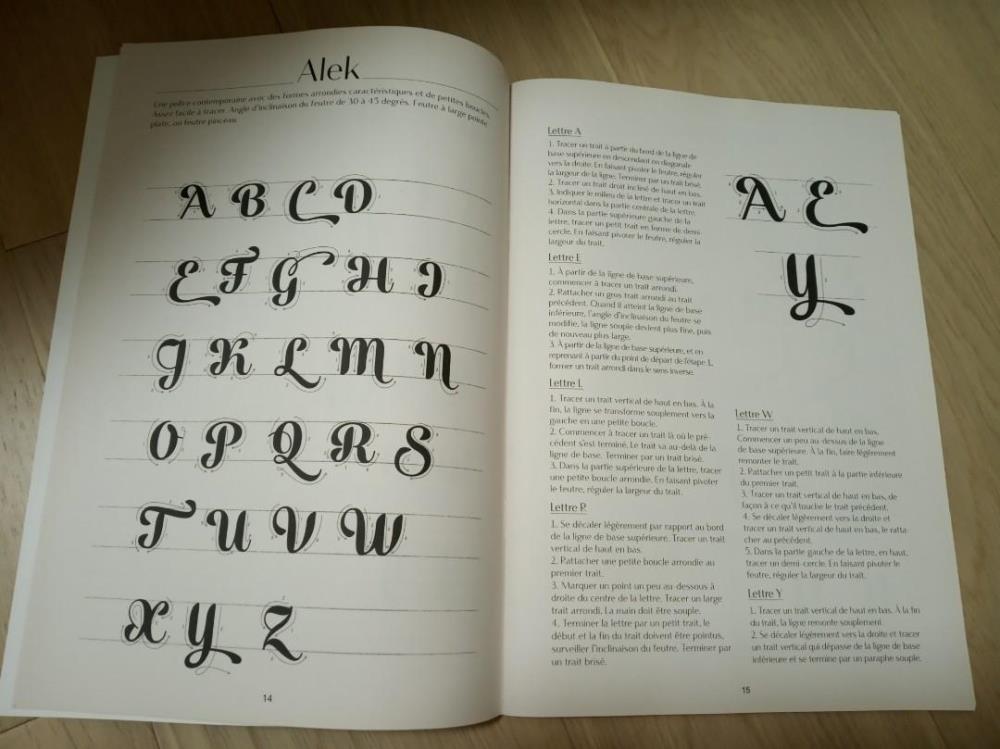 Alek
Une police contemporaine avec des formes arrondies caractéristiques et de petites boucles.
Assez facile à tracer. Angle d'inclinaison du feutre de 30 à 45 degrés. Feutre à large pointe
plate, ou feutre pinceau.
A B C D
E F G H I
J K L M N
O P Q R S
T U V W
X Y Z
14
Lettre A
1. Tracer un trait à partir du bord de la ligne de
base supérieure en descendant en diagonale
vers la droite. En faisant pivoter le feutre, réguler
la largeur de la ligne. Terminer par un trait brisé.
2. Tracer un trait droit incliné de haut en bas.
3. Indiquer le milieu de la lettre et tracer un trait
horizontal dans la partie centrale de la lettre.
4. Dans la partie supérieure gauche de la
lettre, tracer un petit trait en forme de demi-
cercle. En faisant pivoter le feutre, réguler la
largeur du trait.
Lettre E
1. À partir de la ligne de base supérieure,
commencer à tracer un trait arrondi.
2. Rattacher un gros trait arrondi au trait
précédent. Quand il atteint la ligne de base
inférieure, l'angle d'inclinaison du feutre se
modifie, la ligne souple devient plus fine, puis
de nouveau plus large.
3. À partir de la ligne de base supérieure, et en
reprenant à partir du point de départ de l'étape 1,
former un trait arrondi dans le sens inverse.
Lettre L
1. Tracer un trait vertical de haut en bas. À la
fin, la ligne se transforme souplement vers la
gauche en une petite boucle.
2. Commencer à tracer un trait là où le pré-
cédent s'est terminé. Le trait va au-delà de la
ligne de base. Terminer par un trait brisé.
3. Dans la partie supérieure de la lettre, tracer
une petite boucle arrondie. En faisant pivoter
le feutre, réguler la largeur du trait.
Lettre R
1. Se décaler légèrement par rapport au bord
de la ligne de base supérieure. Tracer un trait
vertical de haut en bas.
2. Rattacher une petite boucle arrondie au
premier trait.
3. Marquer un point un peu au-dessous à
droite du centre de la lettre. Tracer un large
trait arrondi. La main doit être souple.
4. Terminer la lettre par un petit trait, le
début et la fin du trait doivent être pointus,
surveiller l'inclinaison du feutre. Terminer par
un trait brisé.
A E
Y
Lettre W
1. Tracer un trait vertical de haut en bas.
Commencer un peu au-dessus de la ligne
de base supérieure. À la fin, faire légèrement
remonter le trait.
2. Rattacher un petit trait à la partie inférieure
du premier trait.
3. Tracer un trait vertical de haut en bas, de
façon à ce qu'il touche le trait précédent.
4. Se décaler légèrement vers la droite et
tracer un trait vertical de haut en bas, le ratta-
cher au précédent.
5. Dans la partie gauche de la lettre, en haut,
tracer un demi-cercle. En faisant pivoter le
feutre, réguler la largeur du trait.
Lettre Y
1. Tracer un trait vertical de haut en bas. À la fin
du trait, la ligne remonte souplement.
2. Se décaler légèrement vers la droite et tracer
un trait vertical qui dépasse de la ligne de base
inférieure et se termine par un paraphe souple.
15